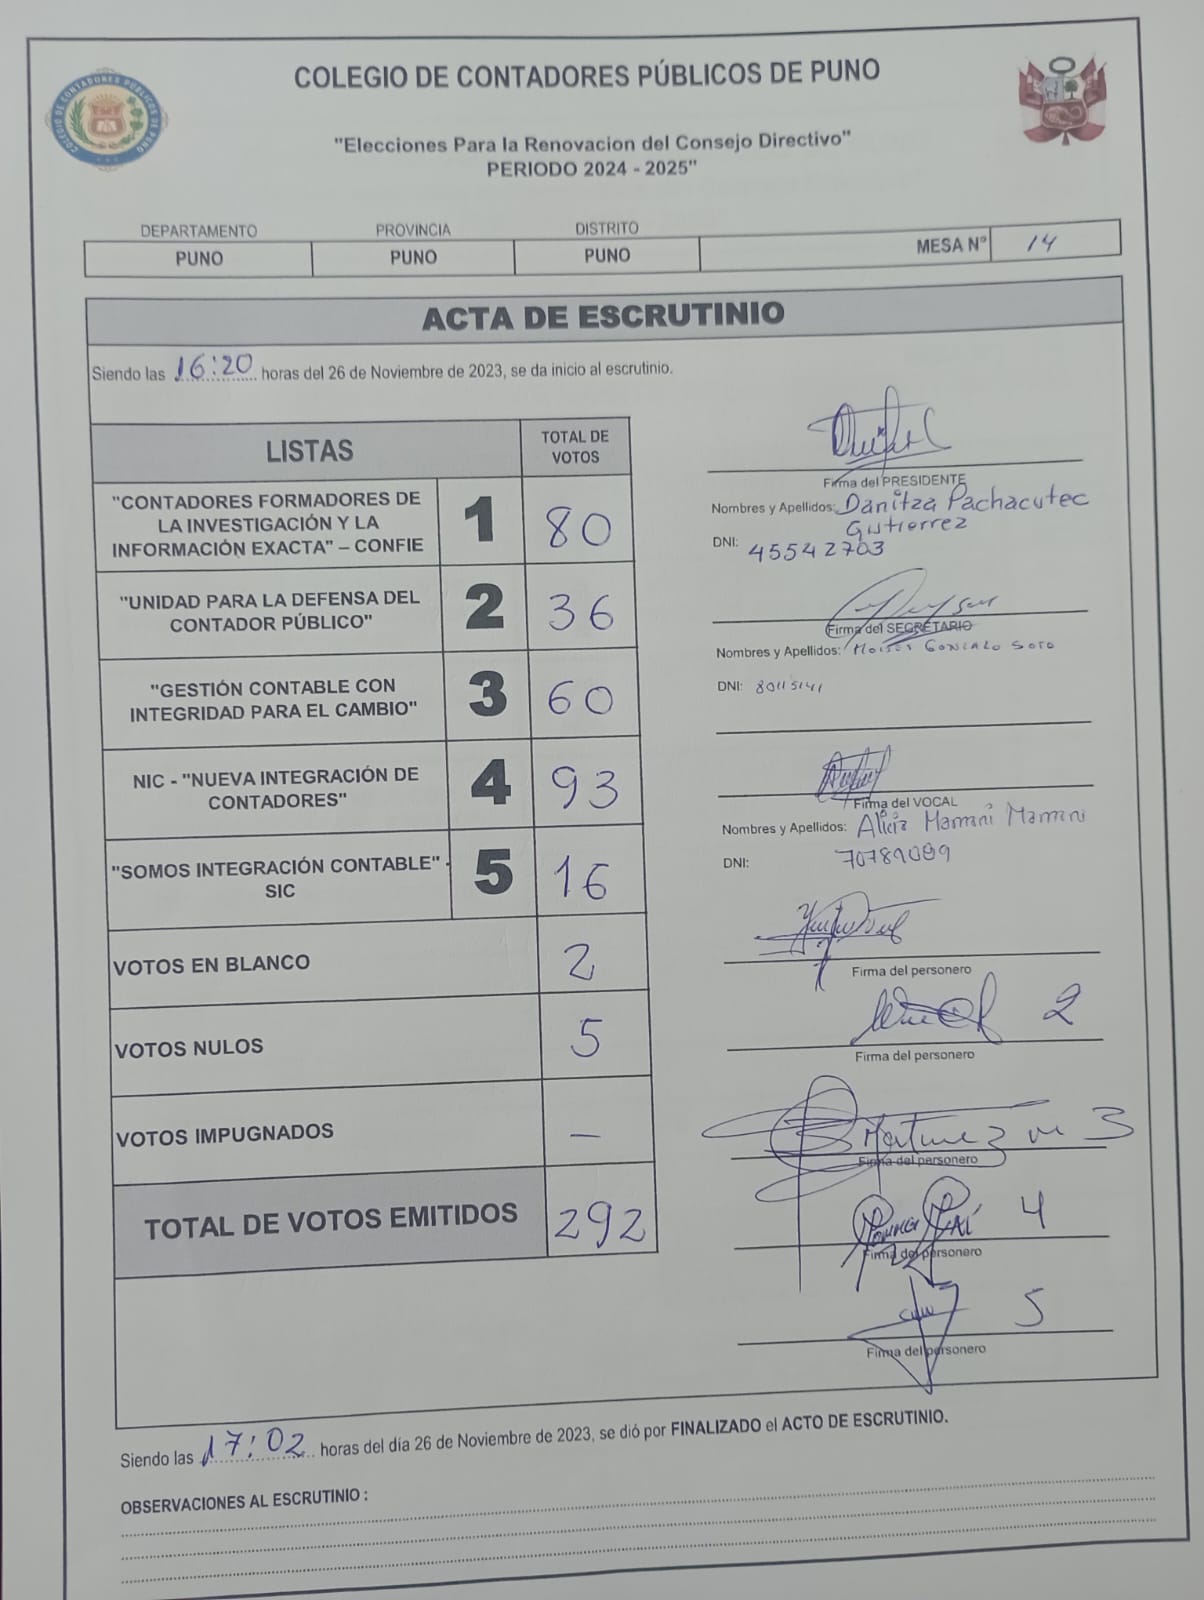 COLEGIO DE CONTADORES PÚBLICOS DE PUNO
COLEGIO DE CONTADORES PUBLICOS DE PUNO
"Elecciones Para la Renovacion del Consejo Directivo"
PERIODO 2024 - 2025"
DEPARTAMENTO PROVINCIA DISTRITO
PUNO PUNO PUNO MESA N° 14
ACTA DE ESCRUTINIO
Siendo las 16:20 horas del 26 de Noviembre de 2023, se da inicio al escrutinio.
LISTAS TOTAL DE VOTOS
"CONTADORES FORMADORES DE
LA INVESTIGACIÓN Y LA
INFORMACIÓN EXACTA" – CONFIE 1 80
"UNIDAD PARA LA DEFENSA DEL
CONTADOR PÚBLICO" 2 36
"GESTIÓN CONTABLE CON
INTEGRIDAD PARA EL CAMBIO" 3 60
NIC - "NUEVA INTEGRACIÓN DE
CONTADORES" 4 93
"SOMOS INTEGRACIÓN CONTABLE" -
SIC 5 16
VOTOS EN BLANCO 2
VOTOS NULOS 5
VOTOS IMPUGNADOS —
TOTAL DE VOTOS EMITIDOS 292
Firma del PRESIDENTE
Nombres y Apellidos: Danitza Pachacutec
Gutierrez
DNI: 45542703
Firma del SECRETARIO
Nombres y Apellidos: Moises Gonzalo Soto
DNI: 80115141
Firma del VOCAL
Nombres y Apellidos: Alicia Mamani Mamani
DNI: 70789099
Firma del personero
2
Firma del personero
3
Firma del personero
4
Firma del personero
5
Firma del personero
Siendo las 17:02 horas del día 26 de Noviembre de 2023, se dió por FINALIZADO el ACTO DE ESCRUTINIO.
OBSERVACIONES AL ESCRUTINIO :